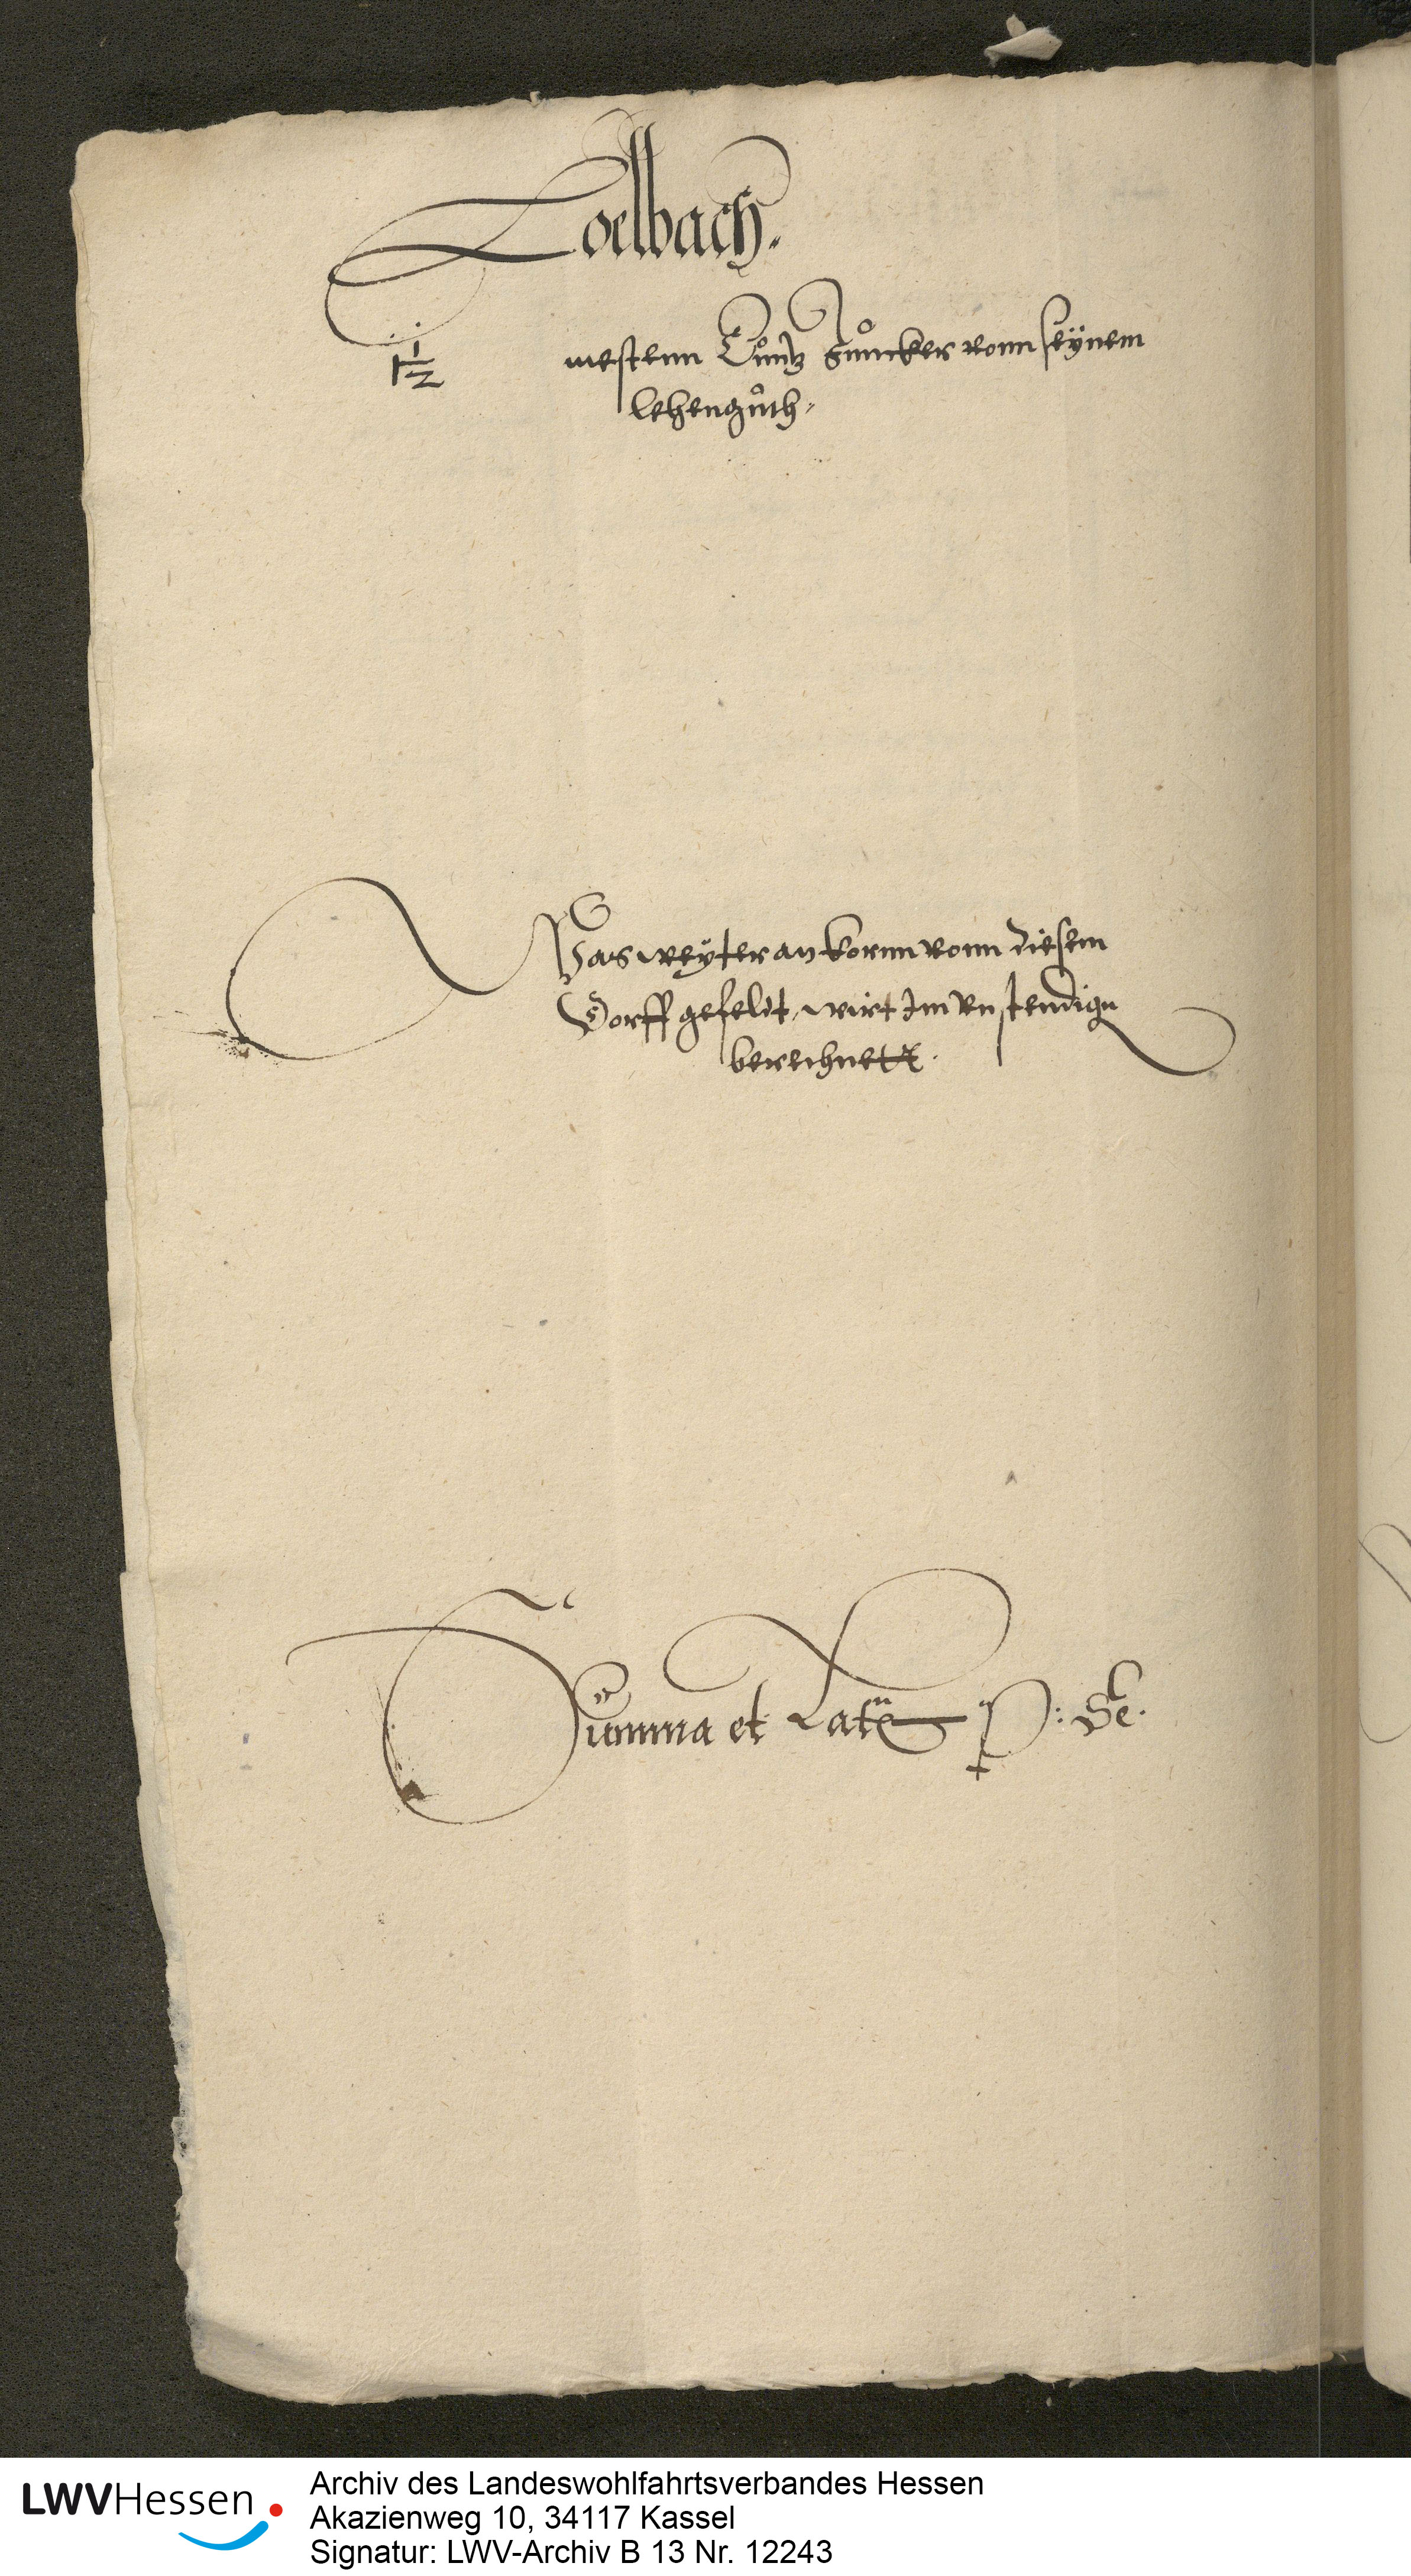 Loelbach.
1 1/2 mestenn Cůntz Jůncker vonn seÿnem
lehengůth.
Was weÿter an kornn vonn diesem
Dorff gefelt, wirt Im Unstendign
berechnett.
Summa et Lat
LWVHessen
Archiv des Landeswohlfahrtsverbandes Hessen
Akazienweg 10, 34117 Kassel
Signatur: LWV-Archiv B 13 Nr. 12243